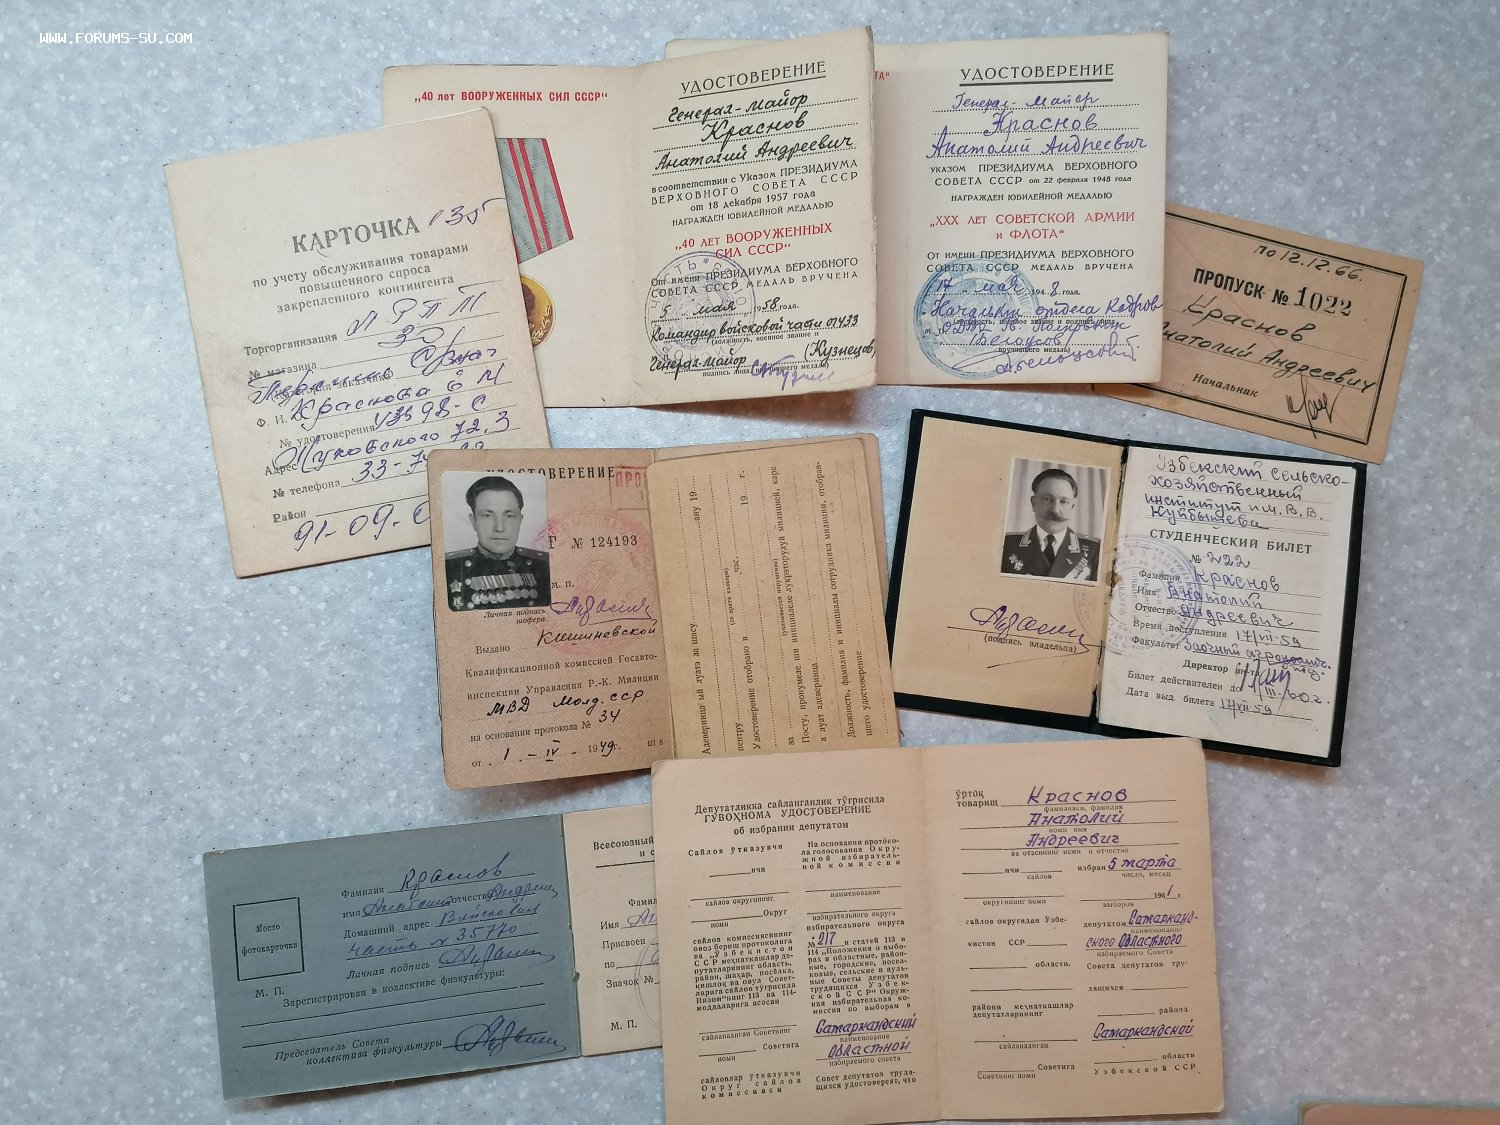 WWW.FORUMS-SU.COM
„40 лет ВООРУЖЕННЫХ СИЛ СССР“
УДОСТОВЕРЕНИЕ
Генерал-Майор
Краснов
Анатолий Андреевич
в соответствии с Указом ПРЕЗИДИУМА
ВЕРХОВНОГО СОВЕТА СССР
от 18 декабря 1957 года
НАГРАЖДЕН ЮБИЛЕЙНОЙ МЕДАЛЬЮ
„40 ЛЕТ ВООРУЖЕННЫХ
СИЛ СССР“
От имени ПРЕЗИДИУМА ВЕРХОВНОГО
СОВЕТА СССР МЕДАЛЬ ВРУЧЕНА
5 мая 1958 года.
Командир войсковой части 01433
(должность, военное звание и
Генерал-Майор (Кузнецов)
подпись лица, вручившего медаль)
УДОСТОВЕРЕНИЕ
Генерал-майор
Краснов
Анатолий Андреевич
УКАЗОМ ПРЕЗИДИУМА ВЕРХОВНОГО
СОВЕТА СССР от 22 февраля 1948 года
НАГРАЖДЕН ЮБИЛЕЙНОЙ МЕДАЛЬЮ
„XXX ЛЕТ СОВЕТСКОЙ АРМИИ
и ФЛОТА“
От имени ПРЕЗИДИУМА ВЕРХОВНОГО
СОВЕТА СССР МЕДАЛЬ ВРУЧЕНА
17 мая 1948 года.
Начальник отдела кадров
Полковник
Белоусов
вручившего медаль)
по 12.12.66.
ПРОПУСК № 1022
Краснов
Анатолий Андреевич
Начальник
КАРТОЧКА 135
по учету обслуживания товарами
повышенного спроса
закрепленного контингента
Торгорганизация
№ магазина
Ф. И. Краснова
№ удостоверения
Адрес Жуковского 72.3
№ телефона 33-74
Район
91-09-0
УДОСТОВЕРЕНИЕ
Г № 124193
М. П.
Личная подпись
шофера
Выдано Кишиневской
Квалификационной комиссией Госавто-
инспекции Управления Р.-К. Милиции
МВД Молд. ССР
на основании протокола № 34
от 1 - IV - 1949 г.
Адеверинца ый луатэ ла
ану 19
Удостоверение отобрано в час. 19 г.
Посту, пронумеле ши инициалеле лукрэторулуй милицией, каре
а луат адеверинца
Должность, фамилия и инициалы сотрудника милиции, отобрав-
шего удостоверение
(подпись владельца)
Узбекский сельско-
хозяйственный
институт им. В. В.
Куйбышева
СТУДЕНЧЕСКИЙ БИЛЕТ
№ 222
Фамилия Краснов
Имя Анатолий
Отчество Андреевич
Время поступления 17/VII-59
Факультет Заочный агрономич.
Директор ин-та
Билет действителен до III-60г.
Дата выд. билета 17/VII-59
Место
фотокарточки
М. П.
Фамилия Краснов
имя Анатолий отчество Андреев
Домашний адрес Войсковая
часть № 35770
Личная подпись
Зарегистрирован в коллективе физкультуры:
Председатель Совета
коллектива физкультуры
Всесоюзный
Имя
Присвоен
по
Значок №
М. П.
Депутатликка сайланганлик тўғрисида
ГУВОҲНОМА УДОСТОВЕРЕНИЕ
об избрании депутатом
Сайлов ўтказувчи
нчи
сайлов округининг
Округ
сайлов комиссиясининг
овоз бериш протоколига
ва „Ўзбекистон
ССР меҳнаткашлар де-
путатларининг область,
район, шаҳар, посёлка,
қишлоқ ва овул Совет-
ларига сайлов тўғрисида
Низом“нинг 113 ва 114-
моддаларига асосан
сайланадиган Советнинг
номи
Советига
сайловлар ўтказувчи
Округ сайлов
комиссияси
На основании протоко-
ла голосования Окру-
жной избиратель-
ной комиссии
наименование
избирательного округа
№ 217 и статей 113 и
114 „Положения о выбо-
рах в областные, район-
ные, городские, посел-
ковые, сельские и ауль-
ные Советы депутатов
трудящихся Узбек-
ской ССР“ Окруж-
ная избирательная ко-
миссия по выборам в
Самаркандский
наименование
областной
избираемого совета
Совет депутатов трудя-
щихся удостоверяет, что
ўртоқ
товарищ Краснов
фамилияси, фамилия
Анатолий
номи имя
Андреевич
ва отасининг исми и отчество
нчи избран 5 марта
сайлов число, месяц
1961 г.
округининг номи выборов
сайлов округидан Узбе- депутатом Самарканд-
наименование
кистон ССР ского областного
избираемого Совета
области. Совета депутатов тру-
дящихся
райони меҳнаткашлар
депутатларининг района
Самаркандской
сайланадиган
Советига области
Советнинг номи Узбекской ССР